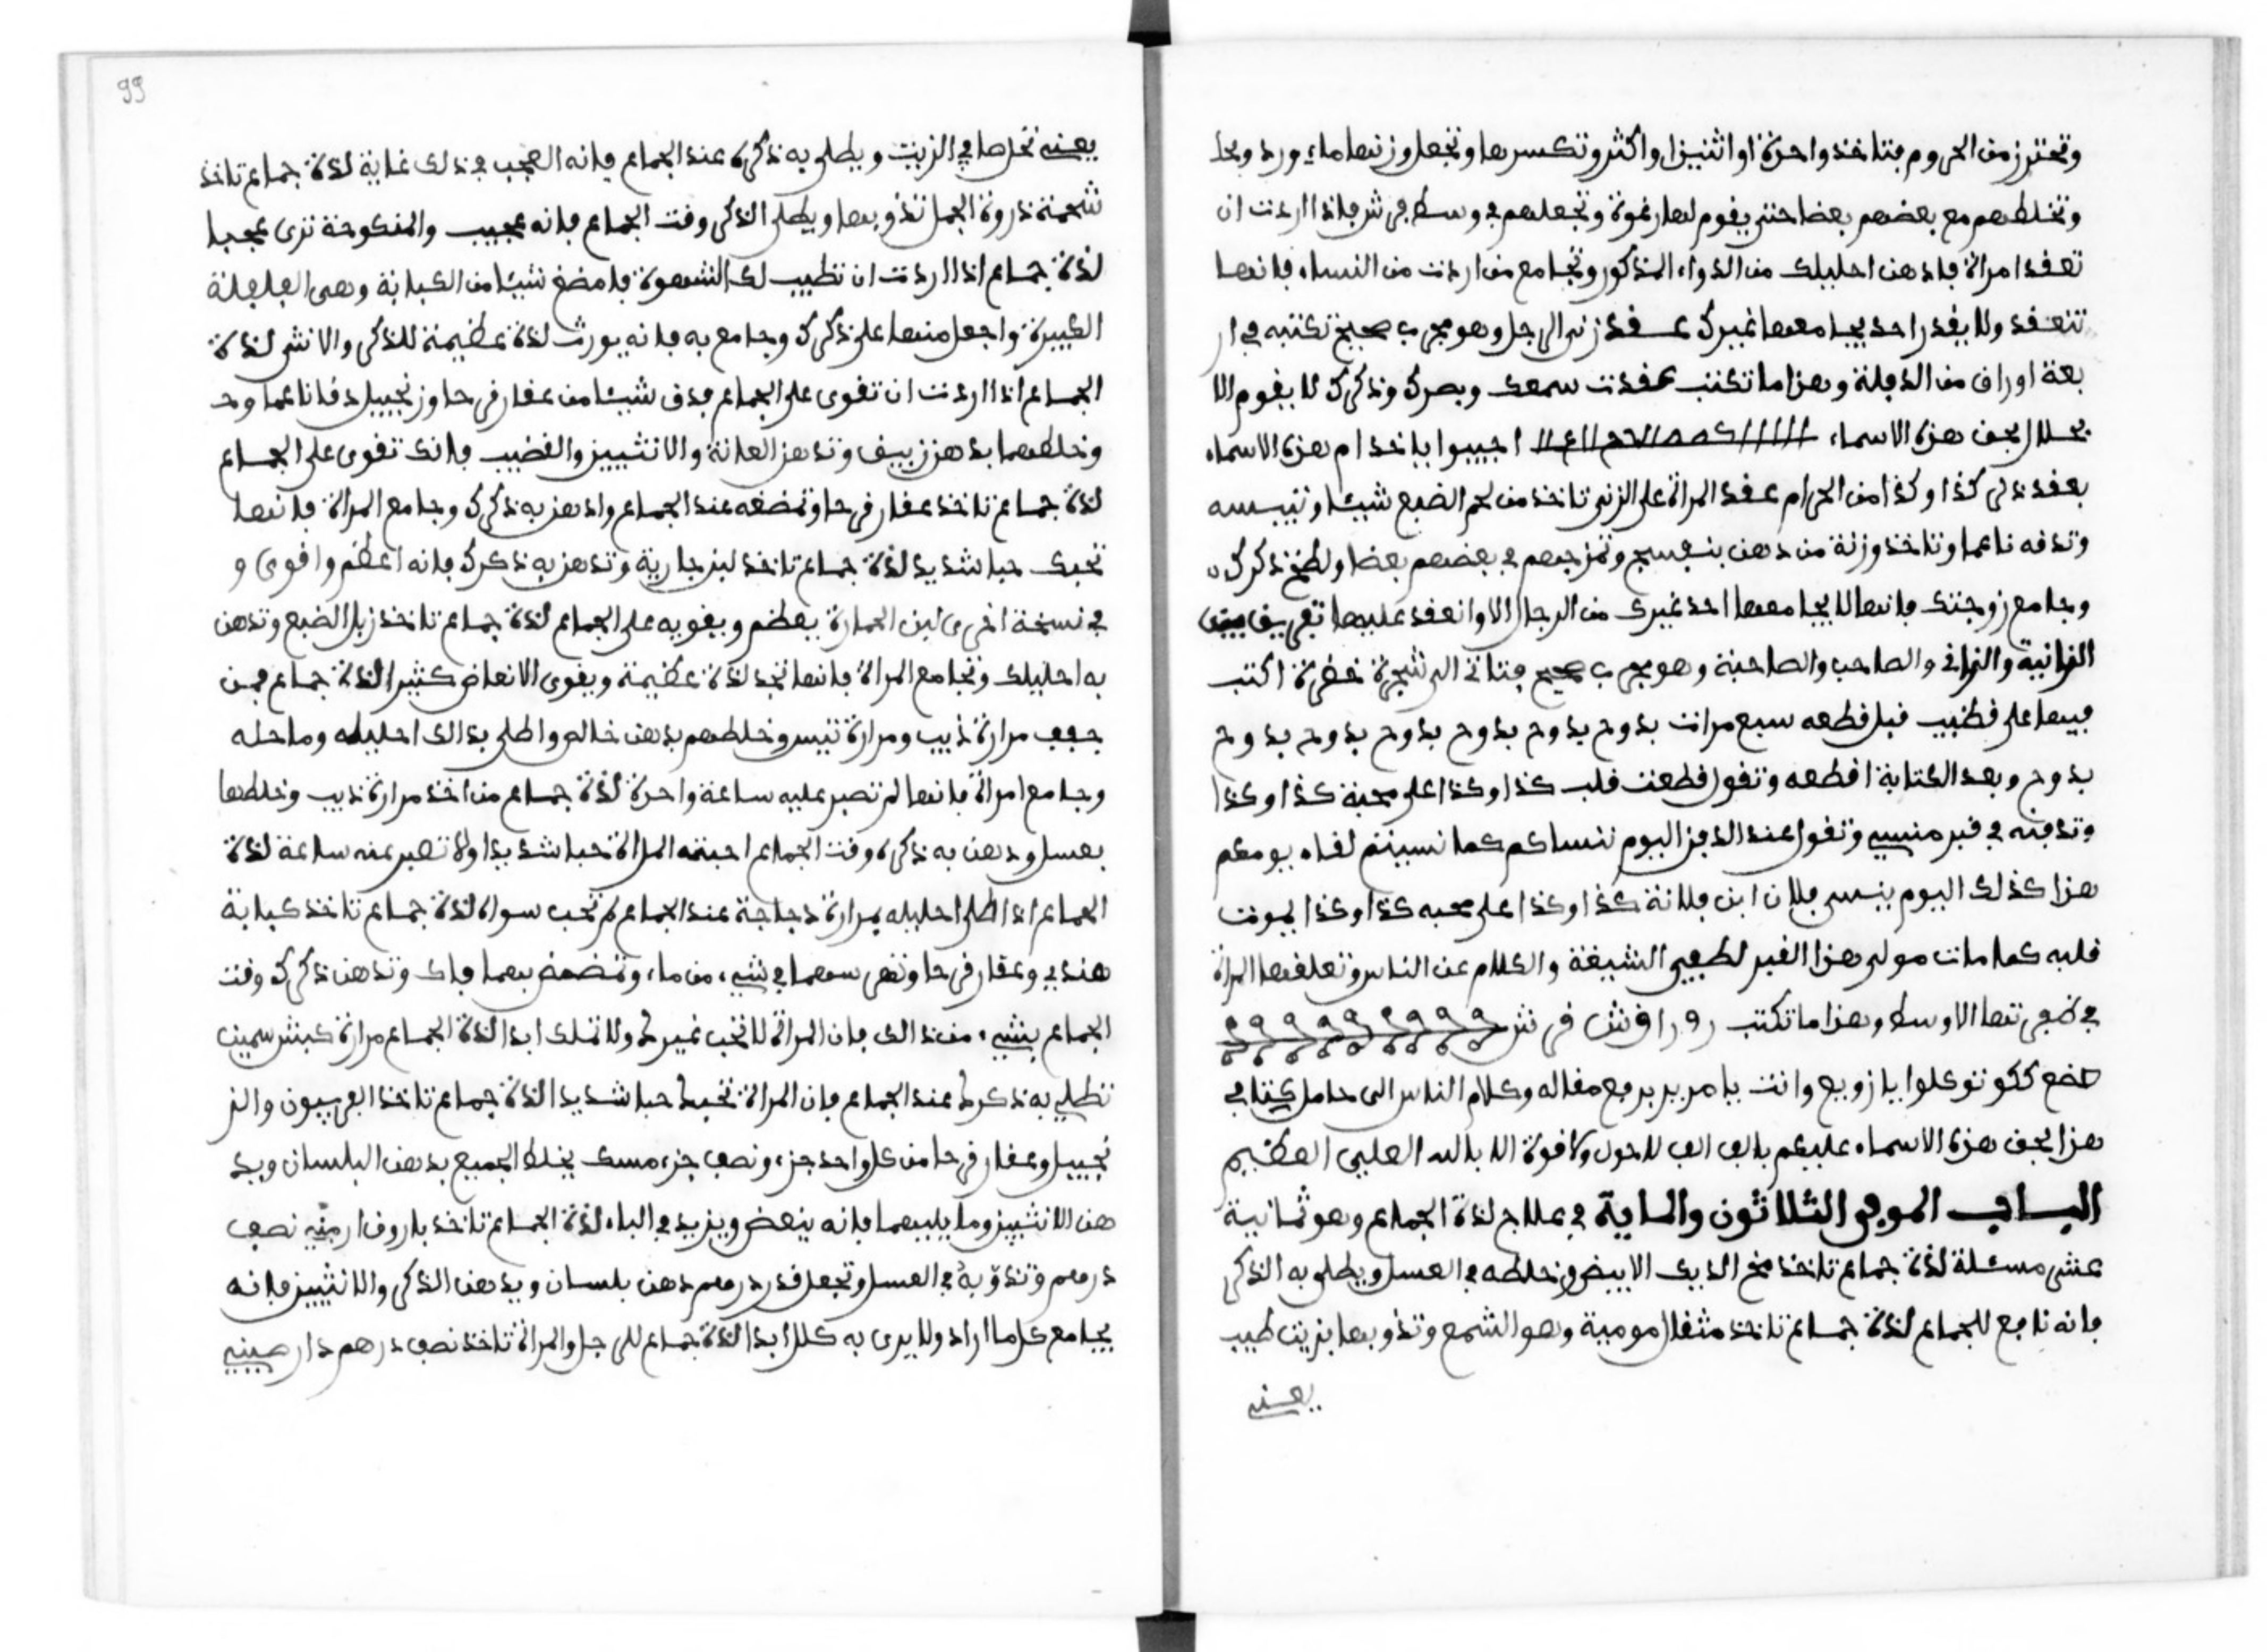 وتحترز من الحروم فتاخذ واحدة او اثنين او اكثر وتكسرها وتجعل وزنها ماء ورد
وتخلطهم مع بعضهم بعضا حتى يقوم لها رغوة وتجعلهم في وسط فاذا اردت ان
تعقد امراة فادهن احليلك من الدواء المذكور وتجامع من اردت من النساء فانها
تنعقد ولا يقدر احد يجامعها غيرك عقد الرجل وهو مجرب صحيح تكتبه في ار
بعة اوراق من الدفلة وهذا ما تكتب عقدت سمعك وبصرك وذكرك لا يقوم الا
بحلال بحق هذه الاسماء اجيبوا يا خدام هذه الاسماء
بعقد ذكر كذا وكذا من الحرام عقد المراة على الزنى تاخذ من لحم الضبع شيئا وتيبسه
وتدقه ناعما وتاخذ وزنه من دهن بنفسج وتمزجهم في بعضهم بعضا ولطخ ذكرك
وجامع زوجتك فانها لا يجامعها احد غيرك من الرجال الا وانعقد عليها تفريق بين
الزانية والزاني والصاحب والصاحبة وهو مجرب صحيح فتاتى الى شجرة خضرة اكتب
فيها على قضيب قبل قطعه سبع مرات بدوح بدوح بدوح بدوح بدوح بدوح بدوح
بدوح وبعد الكتابة اقطعه وتقول قطعت قلب كذا وكذا على محبة كذا وكذا
وتدفنه في قبر منسي وتقول عند الدفن اليوم ننساكم كما نسيتم لقاء يومكم
هذا كذلك اليوم ينسى فلان ابن فلانة كذا وكذا على محبه كذا وكذا يموت
قلبه كما مات مولى هذا القبر الشيقة والكلام عن الناس وتعلقها المراة
في ضفيرتها الاوسط وهذا ما تكتب
توكلوا يا زوبع وانت يا مريد برفع مقاله وكلام الناس الى حامل كتابي
هذا بحق هذه الاسماء عليكم بالف الف لا حول ولا قوة الا بالله العلي العظيم
البـاب الموفي الثلاثون والماية في علاج لذة الجماع وهو ثمانية
عشر مسئلة لذة جماع تاخذ مخ الديك الابيض وخلطه في العسل ويطلى به الذكر
فانه نافع للجماع لذة جماع تاخذ مثقال مومية وهو الشمع وتذوبها بزيت طيب
يعني
99
يعني تحلها في الزيت ويطلى به ذكره عند الجماع فانه العجب في ذلك غاية لذة جماع تاخذ
شحمة ذروة الجمل تذوبها ويطلى الذكر وقت الجماع فانه عجيب والمنكوحة ترى عجبا
لذة جماع اذا اردت ان تطيب لك الشهوة فامضغ شيئا من الكبابة وهي الفلفلة
الكبيرة واجعل منها على ذكرك وجامع به فانه يورث لذة عظيمة للذكر والانثى لذة
الجماع اذا اردت ان تقوى على الجماع فدق شيئا من عقار قرحا وزنجبيل دقا ناعما و
وخلطهما بدهن زيبق وتدهن العانة والانثيين والقضيب فانك تقوى على الجماع
لذة جماع تاخذ عقار قرحا وتمضغه عند الجماع وادهن به ذكرك وجامع المراة فانها
تحبك حبا شديد لذة جماع تاخذ لبن جارية وتدهن به ذكرك فانه اعظم واقوى و
في نسخة اخرى لبن الحمارة يعظم ويقويه على الجماع لذة جماع تاخذ زبل الضبع وتدهن
به احليلك وتجامع المراة فانها تجد لذة عظيمة ويقوى الانعاض كثيرا لذة جماع فمن
جفف مرارة ذيب ومرارة تيس وخلطهم بدهن خالص واطلى بذالك احليله وما حله
وجامع امراة فانها لم تصبر عليه ساعة واحدة لذة جماع من اخذ مرارة ذيب وخلطها
بعسل ودهن به ذكره وقت الجماع احبته المراة حبا شديدا ولا تصبر عنه ساعة لذة
الجماع اذا طلى احليله بمرارة دجاجة عند الجماع لم تحب سواه لذة جماع تاخذ كبابة
هندي وعقار قرحا وتغرسهما في شيء من ماء وتمضمض بهما فاك وتدهن ذكرك وقت
الجماع بشيء من ذالك فان المراة لا تحب غيرك ولا تملك ابدا لذة الجماع مرارة كبش سمين
تطلي به ذكرك عند الجماع فان المراة تحبك حبا شديدا لذة جماع تاخذ الفربيون والز
نجبيل وعقار قرحا من كل واحد جزء ونصف جزء مسك يخلط الجميع بدهن البلسان ويد
هن الانثيين وما يليهما فانه ينعض ويزيد في الباه لذة الجماع تاخذ باروق ارمنيه نصف
درهم وتذوبه في العسل وتجعل قدر درهم دهن بلسان ويدهن الذكر والانثيين فانه
يجامع كل ما اراد ولا يرى به كللا ابدا لذة جماع للرجل والمراة تاخذ نصف درهم دار صيني